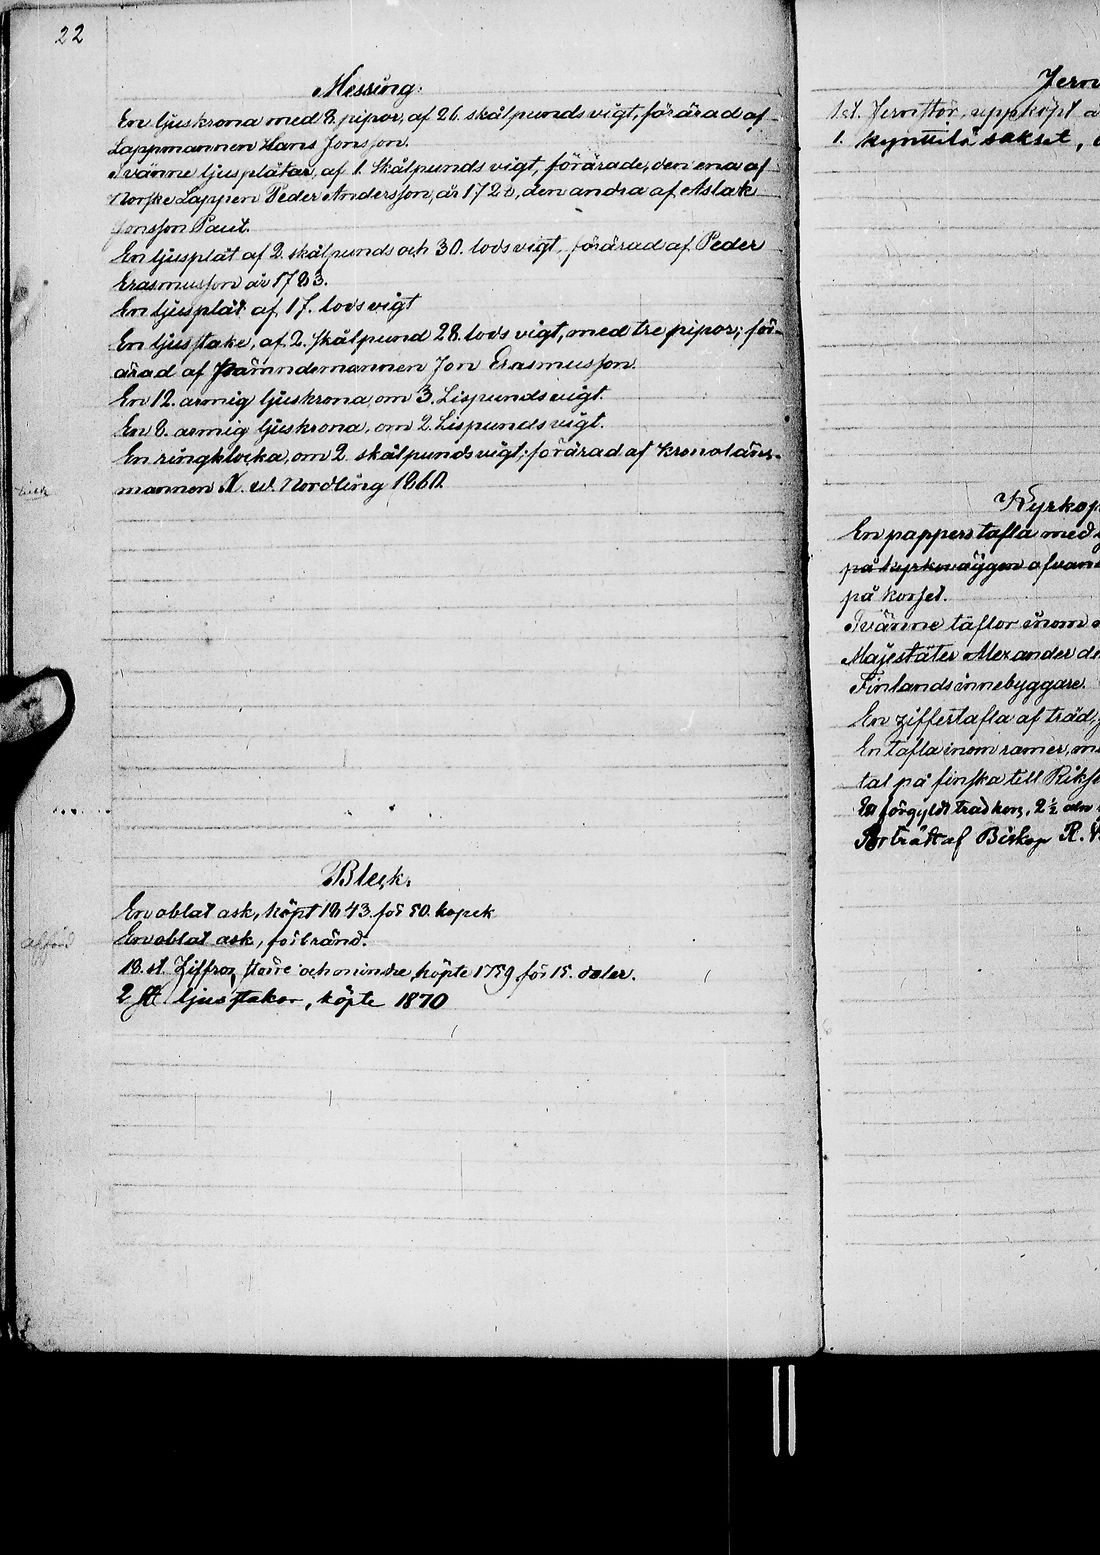 22
Messing.
En ljuskrona med 8. pipor, af 26. skålpunds vigt, förärad af
Lappmannen Hans Jonsson.
Tvänne ljusplåtar, af 1. Skålpunds vigt, förärade, den ena af
Norske Lappen Peder Andersson, år 172 , den andra af Aslak
Jonsson Paul.
En ljusplåt af 2. skålpunds och 30. lods vigt, förärad af Peder
Erasmusson år 1783.
En ljusplåt af 17. lods vigt
En ljusstake, af 2. skålpund 28. lods vigt, med tre pipor; för-
ärad af Nämndemannen Jon Erasmusson.
En 12. armig ljuskrona, om 3. Lispunds vigt.
En 8. armig ljuskrona, om 2. Lispunds vigt.
En ringklocka, om 2. skålpunds vigt; förärad af Kronoläns-
mannen N. W. Nordling 1860.
Bleck.
En oblat ask, köpt 1843. för 50. kopek
afförd
En oblat ask, förbränd.
18. st. Ziffror, större och mindre, köpte 1759 för 15. daler.
2 st ljusstakar, köpte 1870
Jern
1. st. Jernstör, uppköpt
1. kynttilä sakset,
Kyrkop
En papperstafla med
på kyrkoväggen afvan
på korset.
Tvänne taflor inom
Majestäter Alexander de
Finlands innebyggare.
En ziffertafla af träd,
En tafla inom ramer, me
tal på finska till Riks
En förgyldt träd kors, 2½ aln
Porträtt af Biskop R.